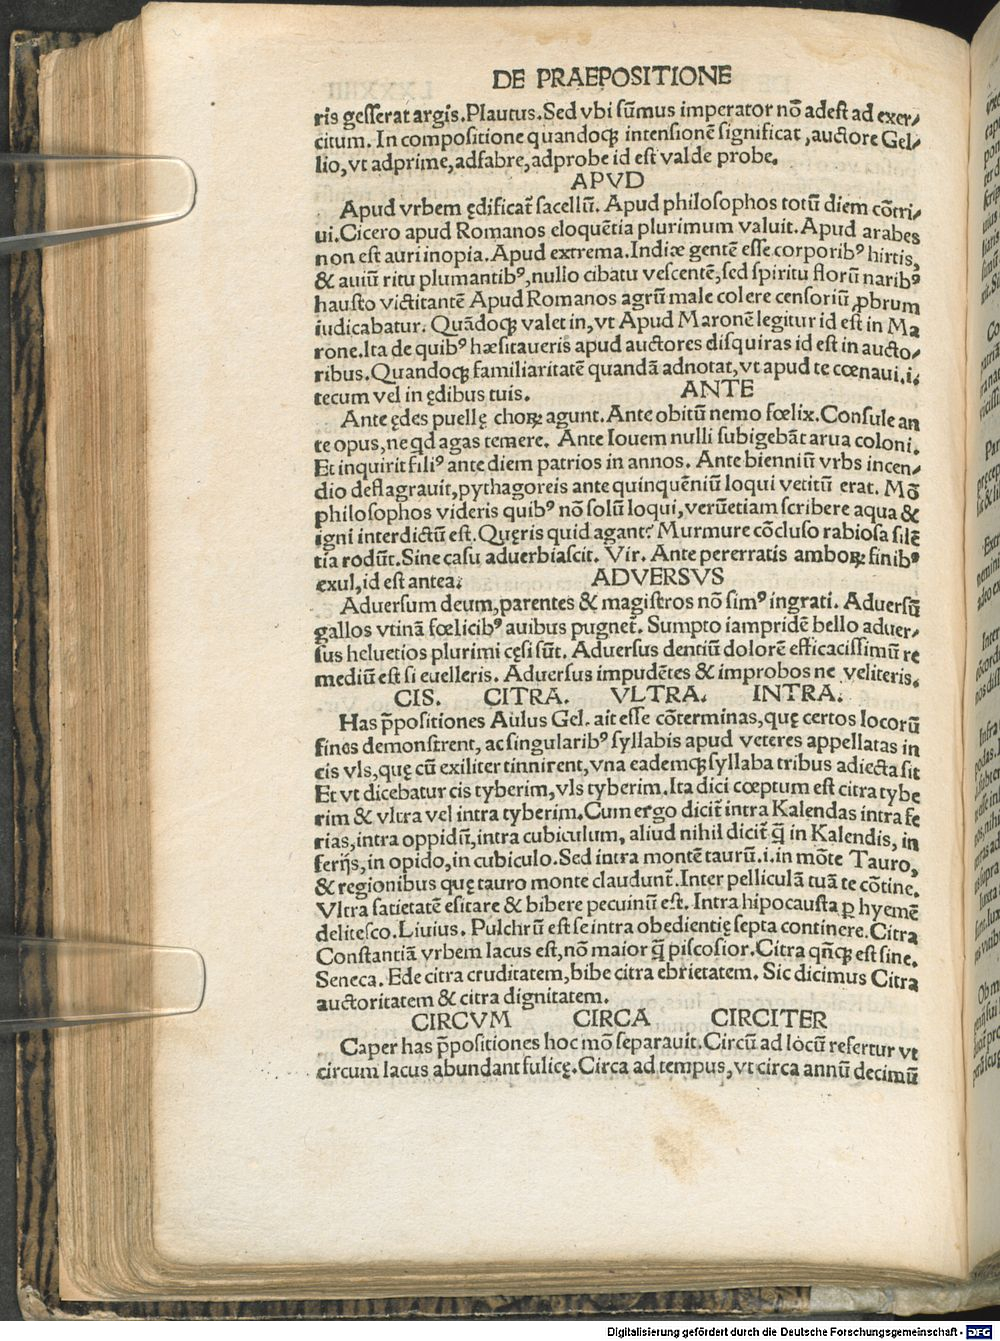 DE PRAEPOSITIONE
ris gesserat argis. Plautus. Sed vbi sūmus imperator nō adest ad exer⸗
citum. In compositione quandoqꝫ intensionē significat, auctore Gel⸗
lio, vt adprime, adfabre, adprobe id est valde probe.
APVD
Apud vrbem ędificat᷑ sacellū. Apud philosophos totū diem cōtri⸗
ui. Cicero apud Romanos eloquētia plurimum valuit. Apud arabes
non est auri inopia. Apud extrema. Indiæ gentē esse corporibꝰ hirtis,
& auiū ritu plumantibꝰ, nullo cibatu vescentē, sed spiritu florū naribꝰ
hausto victitantē Apud Romanos agrū male colere censoriū ꝓbrum
iudicabatur. Quādoqꝫ valet in, vt Apud Maronē legitur id est in Ma
rone. Ita de quibꝰ hæsitaueris apud auctores disquiras id est in aucto⸗
ribus. Quandoqꝫ familiaritatē quandā adnotat, vt apud te cœnaui. i.
tecum vel in ędibus tuis. ANTE
Ante ędes puellę choꝝ agunt. Ante obitū nemo fœlix. Consule an
te opus, ne qd agas temere. Ante Iouem nulli subigebāt arua coloni.
Et inquirit filiꝰ ante diem patrios in annos. Ante bienniū vrbs incen⸗
dio deflagrauit, pythagoreis ante quinquēniū loqui vetitū erat. Mō
philosophos videris quibꝰ nō solū loqui, verūetiam scribere aqua &
igni interdictū est. Quęris quid agant? Murmure cōcluso rabiosa silē
tia rodūt. Sine casu aduerbiascit. Vir. Ante pererratis amboꝝ finibꝰ
exul, id est antea. ADVERSVS
Aduersum deum, parentes & magistros nō simꝰ ingrati. Aduersū
gallos vtinā fœlicibꝰ auibus pugnet᷑. Sumpto iampridē bello aduer⸗
sus heluetios plurimi cęsi sūt. Aduersus dentiū dolorē efficacissimū re
mediū est si euelleris. Aduersus impudētes & improbos ne veliteris.
CIS. CITRA. VLTRA. INTRA.
Has p̄positiones Aulus Gel. ait esse cōterminas, quę certos locorū
fines demonstrent, ac singularibꝰ syllabis apud veteres appellatas in
cis vls, quę cū exiliter tinnirent, vna eademqꝫ syllaba tribus adiecta sit
Et vt dicebatur cis tyberim, vls tyberim. Ita dici cœptum est citra tybe
rim & vltra vel intra tyberim. Cum ergo dicit᷑ intra Kalendas intra fe
rias, intra oppidū, intra cubiculum, aliud nihil dicit᷑ q̄ in Kalendis, in
ferijs, in opido, in cubiculo. Sed intra montē taurū. i. in mōte Tauro,
& regionibus quę tauro monte claudunt᷑. Inter pelliculā tuā te cōtine.
Vltra satietatē esitare & bibere pecuinū est. Intra hipocausta ꝑ hyemē
delitesco. Liuius. Pulchrū est se intra obedientię septa continere. Citra
Constantiā vrbem lacus est, nō maior q̄ piscosior. Citra qn̄qꝫ est sine.
Seneca. Ede citra cruditatem, bibe citra ebrietatem. Sic dicimus Citra
auctoritatem & citra dignitatem.
CIRCVM CIRCA CIRCITER
Caper has p̄positiones hoc mō separauit. Circū ad locū refertur vt
circum lacus abundant fulicę. Circa ad tempus, vt circa annū decimū
Digitalisierung gefördert durch die Deutsche Forschungsgemeinschaft - DFG